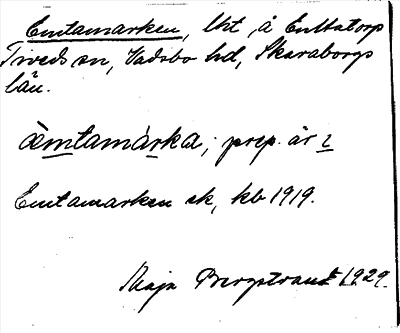 Emtamarken, lht, å Enbhatorp
Tiveds sn, Vadsbo hd, Skaraborgs
län.
æmtamàrka; prep. är i
Emtamarken ek, kb 1919.
Maja Bergstrand 1929.